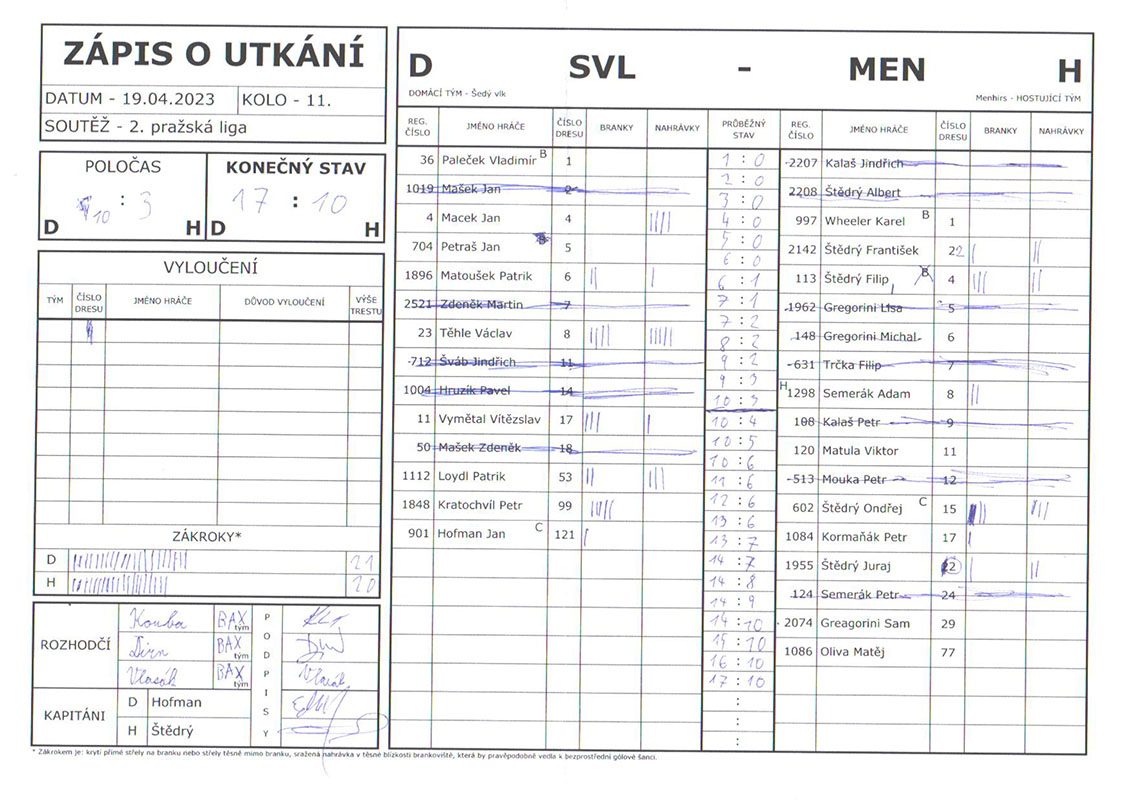 ZÁPIS O UTKÁNÍ
DATUM - 19.04.2023 KOLO - 11.
SOUTĚŽ - 2. pražská liga
POLOČAS KONEČNÝ STAV
10 : 3 17 : 10
D H D H
VYLOUČENÍ
TÝM ČÍSLO DRESU JMÉNO HRÁČE DŮVOD VYLOUČENÍ VÝŠE TRESTU
ZÁKROKY*
D 21
H 20
ROZHODČÍ PODPISY
Kouba BAX tým
Dirn BAX tým
Vlasák BAX tým Vlasák
KAPITÁNI
D Hofman
H Štědrý
D SVL - MEN H
DOMÁCÍ TÝM - Šedý vlk Menhirs - HOSTUJÍCÍ TÝM
REG. ČÍSLO JMÉNO HRÁČE ČÍSLO DRESU BRANKY NAHRÁVKY PRŮBĚŽNÝ STAV REG. ČÍSLO JMÉNO HRÁČE ČÍSLO DRESU BRANKY NAHRÁVKY
36 Paleček Vladimír B 1
1019 Mašek Jan 2
4 Macek Jan 4 ||||
704 Petraš Jan B 5
1896 Matoušek Patrik 6 || |
2521 Zdeněk Martin 7
23 Těhle Václav 8 |||| |||||
712 Šváb Jindřich 11
1004 Hruzík Pavel 14
11 Vymětal Vítězslav 17 ||| |
50 Mašek Zdeněk 18
1112 Loydl Patrik 53 || |||
1848 Kratochvíl Petr 99 |||||
901 Hofman Jan C 121 |
1 : 0
2 : 0
3 : 0
4 : 0
5 : 0
6 : 0
6 : 1
7 : 1
7 : 2
8 : 2
9 : 2
9 : 3
10 : 3
10 : 4
10 : 5
10 : 6
11 : 6
12 : 6
13 : 6
13 : 7
14 : 7
14 : 8
14 : 9
14 : 10
15 : 10
16 : 10
17 : 10
:
:
:
2207 Kalaš Jindřich
2208 Štědrý Albert
997 Wheeler Karel B 1
2142 Štědrý František 22 | ||
113 Štědrý Filip B 4 ||| ||
1962 Gregorini Lisa 5
148 Gregorini Michal 6
631 Trčka Filip 7
H 1298 Semerák Adam 8 ||
108 Kalaš Petr 9
120 Matula Viktor 11
513 Mouka Petr 12
602 Štědrý Ondřej C 15 ||| |||
1084 Kormaňák Petr 17 |
1955 Štědrý Juraj 22 | ||
124 Semerák Petr 24
2074 Greagorini Sam 29
1086 Oliva Matěj 77
* Zákrokem je: krytí přímé střely na branku nebo střely těsně mimo branku, sražená nahrávka v těsné blízkosti brankoviště, která by pravěpodobně vedla k bezprostřední gólové šanci.